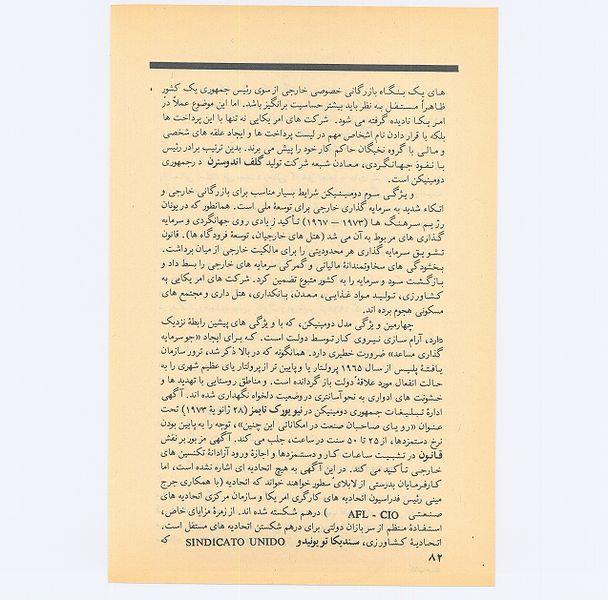 های یک بنگاه بازرگانی خصوصی خارجی از سوی رئیس جمهوری یک کشور
ظاهراً مستقل به نظر باید بیشتر حساسیت برانگیز باشد. اما این موضوع عملاً در
امریکا نادیده گرفته می شود. شرکت های امریکایی نه تنها با این پرداخت ها
بلکه با قرار دادن نام اشخاص مهم در لیست پرداخت ها و ایجاد علقه های شخصی
و مالی با گروه نخبگان حاکم کار خود را پیش می برند. بدین ترتیب برادر رئیس
با نفوذ جهانگردی، معادن شعبه شرکت تولید گلف اندوسترن در جمهوری
دومینیکن است.
ویژگی سوم دومینیکن شرایط بسیار مناسب برای بازرگانی خارجی و
اتکاء شدید به سرمایه گذاری خارجی برای توسعهٔ ملی است. همانطور که در یونان
رژیم سرهنگ ها (۱۹۷۳ — ۱۹۶۷) تأکید زیادی روی جهانگردی و سرمایه
گذاری های مربوط به آن می شد (هتل های خارجیان، توسعهٔ فرودگاه ها). قانون
تشویق سرمایه گذاری هر محدودیتی را برای مالکیت خارجی از میان برداشت.
بخشودگی های سخاوتمندانهٔ مالیاتی و گمرکی سرمایه های خارجی را بسط داد و
بازگشت سود و سرمایه را به کشور متبوع تضمین کرد. شرکت های امریکایی به
کشاورزی، تولید مواد غذایی، معدن، بانکداری، هتل داری و مجتمع های
مسکونی هجوم برده اند.
چهارمین ویژگی مدل دومینیکن، که با ویژگی های پیشین رابطهٔ نزدیک
دارد، آرام سازی نیروی کار توسط دولت است. که برای ایجاد «جو سرمایه
گذاری مساعد» ضرورت خطیری دارد. همانگونه که در بالا ذکر شد، ترور سازمان
یافتهٔ پلیس از سال ۱۹۶۵ پرولتاریا و پایین تر از پرولتاریای عظیم شهری را به
حالت انفعال مورد علاقهٔ دولت باز گردانده است. و مناطق روستایی با تهدید ها و
خشونت های ادواری به نحو آسانتری در وضعیت دلخواه نگهداری شده اند. آگهی
ادارهٔ تبلیغات جمهوری دومینیکن در نیویورک تایمز (۲۸ ژانویهٔ ۱۹۷۳) تحت
عنوان «رویای صاحبان صنعت در امکاناتی این چنین»، توجه را به پایین بودن
نرخ دستمزدها، از ۲۵ تا ۵۰ سنت در ساعت، جلب می کند. آگهی مزبور بر نقش
قانون در تثبیت ساعات کار و دستمزدها و اجازهٔ ورود آزادانهٔ تکنسین های
خارجی تأکید می کند. در این آگهی به هیچ اتحادیه ای اشاره نشده است، اما
کارفرمایان بدرستی از لابلای سطور خواهند خواند که اتحادیه (با همکاری جرج
مینی رئیس فدراسیون اتحادیه های کارگری امریکا و سازمان مرکزی اتحادیه های
صنعتی AFL - CIO ) درهم شکسته شده اند. از زمرهٔ مزایای خاص،
استفادهٔ منظم از سربازان دولتی برای درهم شکستن اتحادیه های مستقل است.
اتحادیهٔ کشاورزی، سندیکاتو یونیدو SINDICATO UNIDO که
۸۲